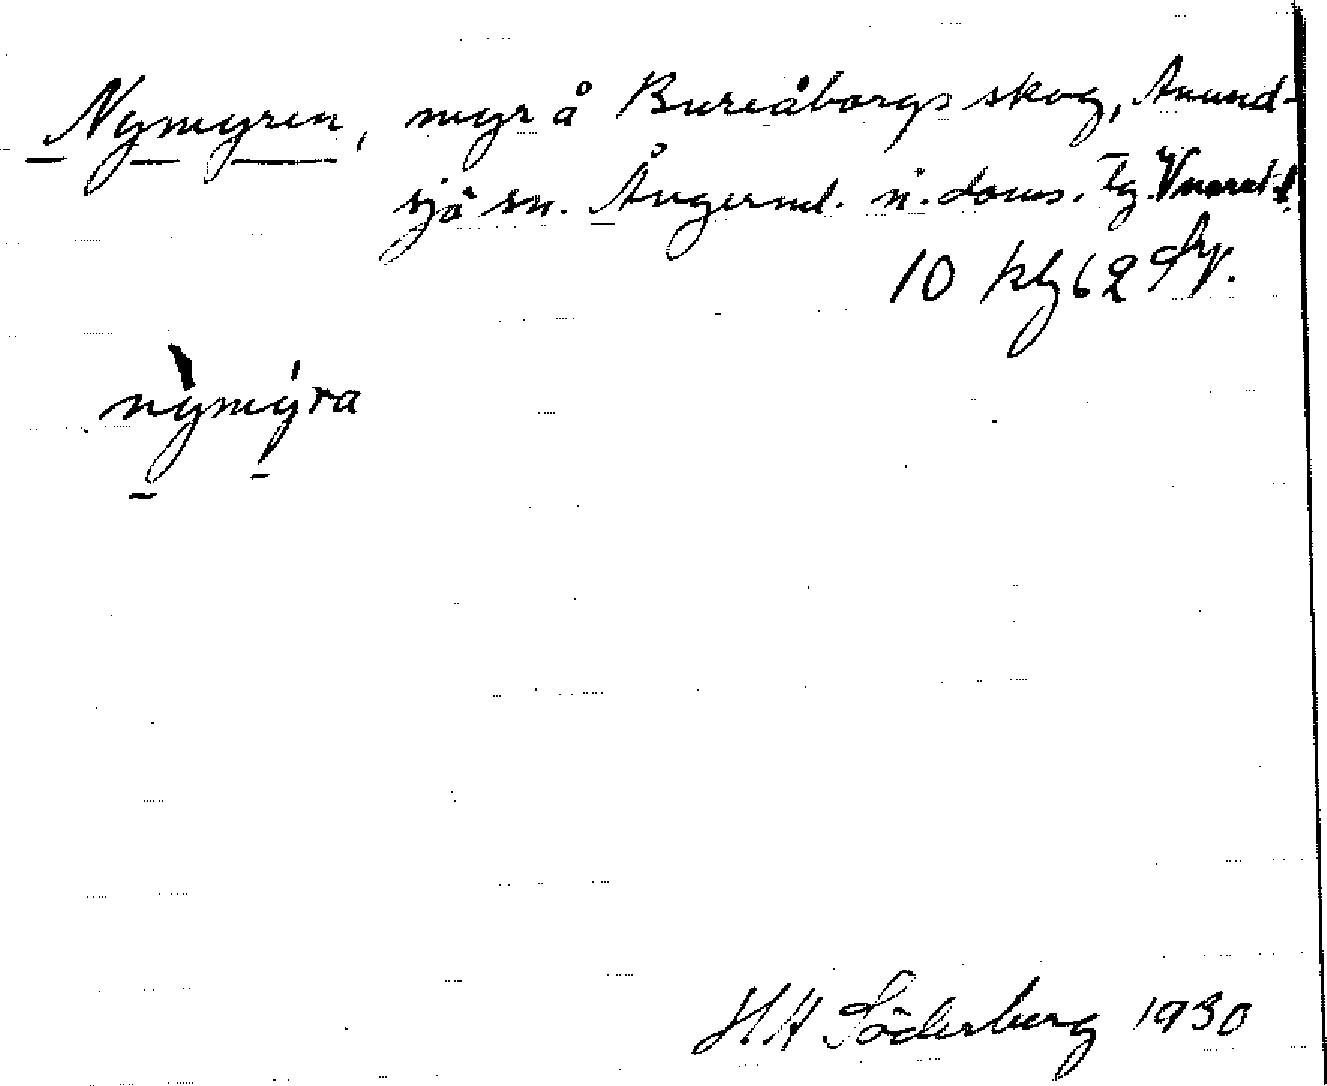 Nymyren, myr å Bureåborgs skog, Anund-
sjö sn. Ångerml. n. doms. Tg.
10 kl 62 Sy.
nỳmýra
HH Söderberg 1930